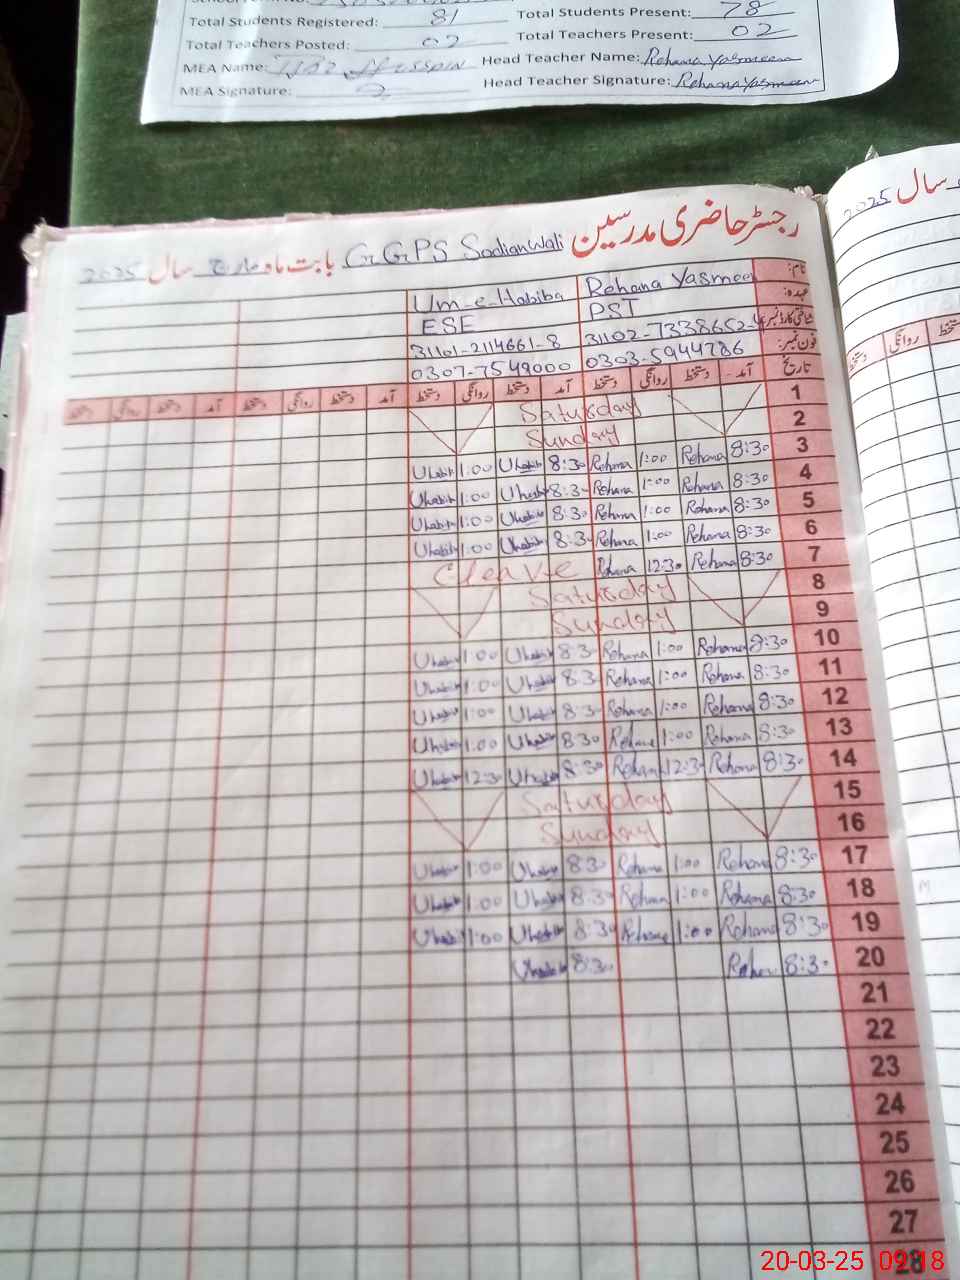 Total Students Registered: 81 Total Students Present: 78
Total Teachers Posted: 02 Total Teachers Present: 02
MEA Name: Head Teacher Name: Rehana Yasmeen
MEA Signature: Head Teacher Signature: Rehana Yasmeen
رجسٹر حاضری مدرسین GGPS Sodianwali بابت ماہ مارچ سال 2025
سال 2025
نام: Rehana Yasmeen Um-e-Habiba
عہدہ: PST ESE
شناختی کارڈ نمبر 31102-7338652-4 31101-2114661-8
فون نمبر: 0303-5944786 0307-7549000
تاریخ آمد دستخط روانگی دستخط آمد دستخط روانگی دستخط آمد دستخط روانگی دستخط آمد دستخط روانگی دستخط
دستخط روانگی دستخط
Saturday 1
Sunday 2
Uhabib 1:00 Uhabib 8:30 Rehana 1:00 Rehana 8:30 3
Uhabib 1:00 Uhabib 8:30 Rehana 1:00 Rehana 8:30 4
Uhabib 1:00 Uhabib 8:30 Rehana 1:00 Rehana 8:30 5
Uhabib 1:00 Uhabib 8:30 Rehana 1:00 Rehana 8:30 6
C leave Rehana 12:30 Rehana 8:30 7
Saturday 8
Sunday 9
Uhabib 1:00 Uhabib 8:30 Rehana 1:00 Rehana 8:30 10
Uhabib 1:00 Uhabib 8:30 Rehana 1:00 Rehana 8:30 11
Uhabib 1:00 Uhabib 8:30 Rehana 1:00 Rehana 8:30 12
Uhabib 1:00 Uhabib 8:30 Rehana 1:00 Rehana 8:30 13
Uhabib 12:30 Uhabib 8:30 Rehana 12:30 Rehana 8:30 14
Saturday 15
Sunday 16
Uhabib 1:00 Uhabib 8:30 Rehana 1:00 Rehana 8:30 17
Uhabib 1:00 Uhabib 8:30 Rehana 1:00 Rehana 8:30 18
Uhabib 1:00 Uhabib 8:30 Rehana 1:00 Rehana 8:30 19
Uhabib 8:30 Rehan 8:30 20
21
22
23
24
25
26
27
28
20-03-25 09:18